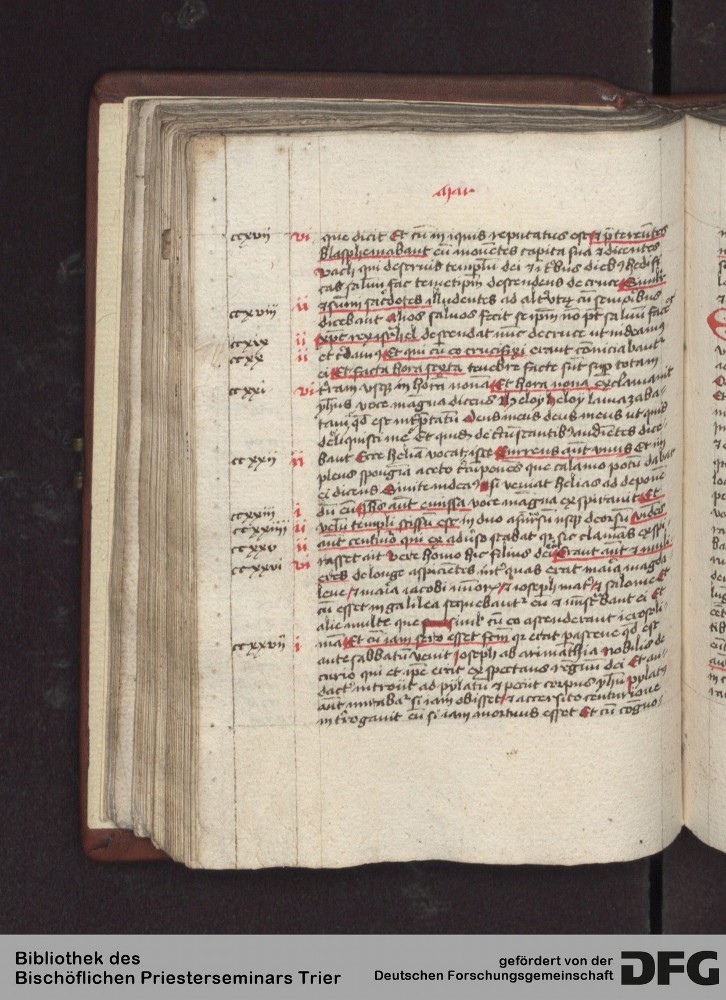 ccxvii vi que dicit Et cu in iquis reputatus est Et p̄tereūtes
blasphemabant eū mouētes capita sua et dicentes
vach qui destruis templū dei et i tbus dieb reedifi
cas saluū fac temetipm descendens de cruce Similr
ccxviii ii et sum̄i sacdotes illudentes ad altutrū cu scribis
dicebant Alios saluos fecit seipm nō pt saluū face
ccxix ii xpc rex isrl descendat nūc de cruce ut videamus
ccxx ii et cdamus Et qui cū eo crucifixi erant cōuiciabantr
ei Et facta hora sexta tenebre facte sūt sup totam
ccxxi vi trram usqz in horā nonā Et hora nona exclamauit
yhus voce magna dicens Heloy heloy lamazaba
tani qd est intptatū deus meus deus meus ut quid
deliquisti me Et quidā de circūstantibus audiētes dice
ccxxii ii bant Ecce heliā vocat iste Currens aut unus Et im
plens spongiā aceto circūponēs que calamo potū dabat
ei dicens Sinite videā si veniat helias ad deponē
ccxxiii i dū eū yhs aut emissa voce magna expirauit Et
ccxxiiii ii velū templi scissū est in duo a sūmo usqz deorsū videns
ccxxv ii aut centurio qui ex aduso stabat qr sic clamās expi
ccxxvi vi rasset ait vere homo hic filius dei erat Erant aut et muli
eres de longe aspicientes int quas erat maria magda
lene et maria iacobi minoris et ioseph mater et salome Et
cū esset in galilea sequebantr eū et mistrabant ei Et
alie multe que simul cū eo ascenderant ierosoli
ccxxvii i mā Et cū iam sero esset fcm qr erat parasceue qd est
ante sabbatū venit ioseph ab arimathia nobilis de
curio qui et ipe erat expectans regnū dei Et au
dactr introiit ad pylatū et petiit corpus yhu pylatus
aut mirabar si iam obisset et accersito centurione
introgauit eū si iam mortuus esset Et cū cogno
Bibliothek des
Bischöflichen Priesterseminars Trier
gefördert von der
Deutschen Forschungsgemeinschaft
DFG